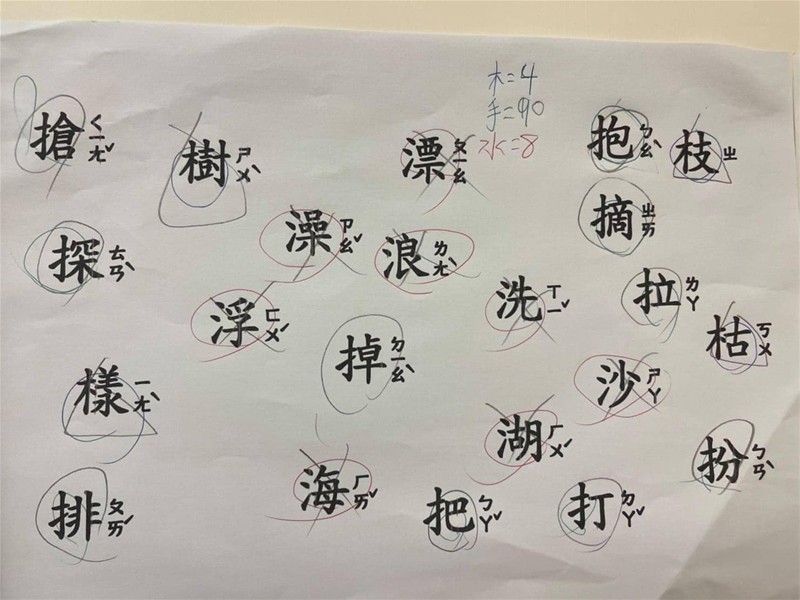 木=4
手=90
水=8
搶 ㄑㄧㄤˇ
樹 ㄕㄨˋ
漂 ㄆㄧㄠ
抱 ㄅㄠˋ
枝 ㄓ
摘 ㄓㄞ
探 ㄊㄢˋ
澡 ㄗㄠˇ
浪 ㄌㄤˋ
浮 ㄈㄨˊ
洗 ㄒㄧˇ
拉 ㄌㄚ
枯 ㄎㄨ
掉 ㄉㄧㄠˋ
樣 ㄧㄤˋ
沙 ㄕㄚ
湖 ㄏㄨˊ
扮 ㄅㄢˋ
排 ㄆㄞˊ
海 ㄏㄞˇ
把 ㄅㄚˇ
打 ㄉㄚˇ